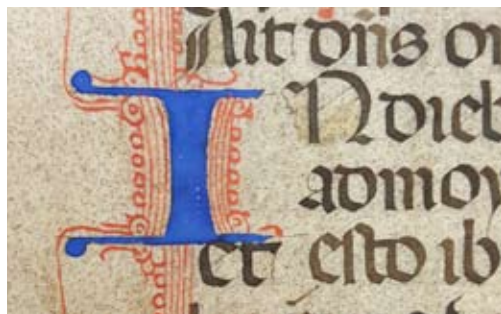 Ait dñs o
INdieb
admoy
et esto ib